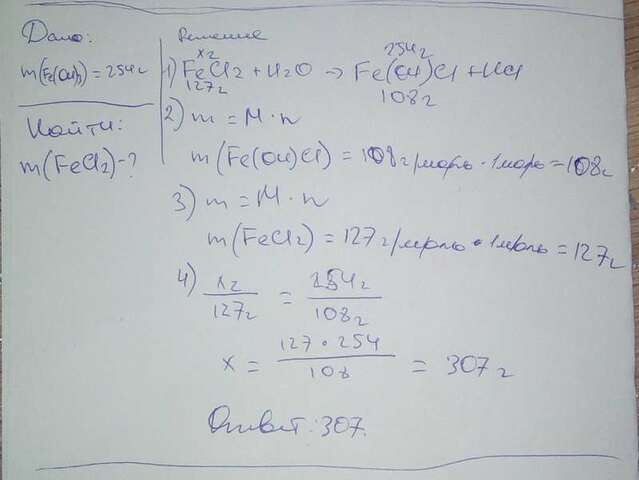 Дано:
m(Fe(OH)2) = 254г
Найти:
m(FeCl2)-?
Решение
хг 254г
1) FeCl2 + H2O → Fe(OH)Cl + HCl
127г 108г
2) m = M · n
m(Fe(OH)Cl) = 108г/моль · 1моль = 108г
3) m = M · n
m(FeCl2) = 127г/моль · 1моль = 127г
4) хг/127г = 254г/108г
x = 127 · 254/108 = 307г
Ответ: 307.